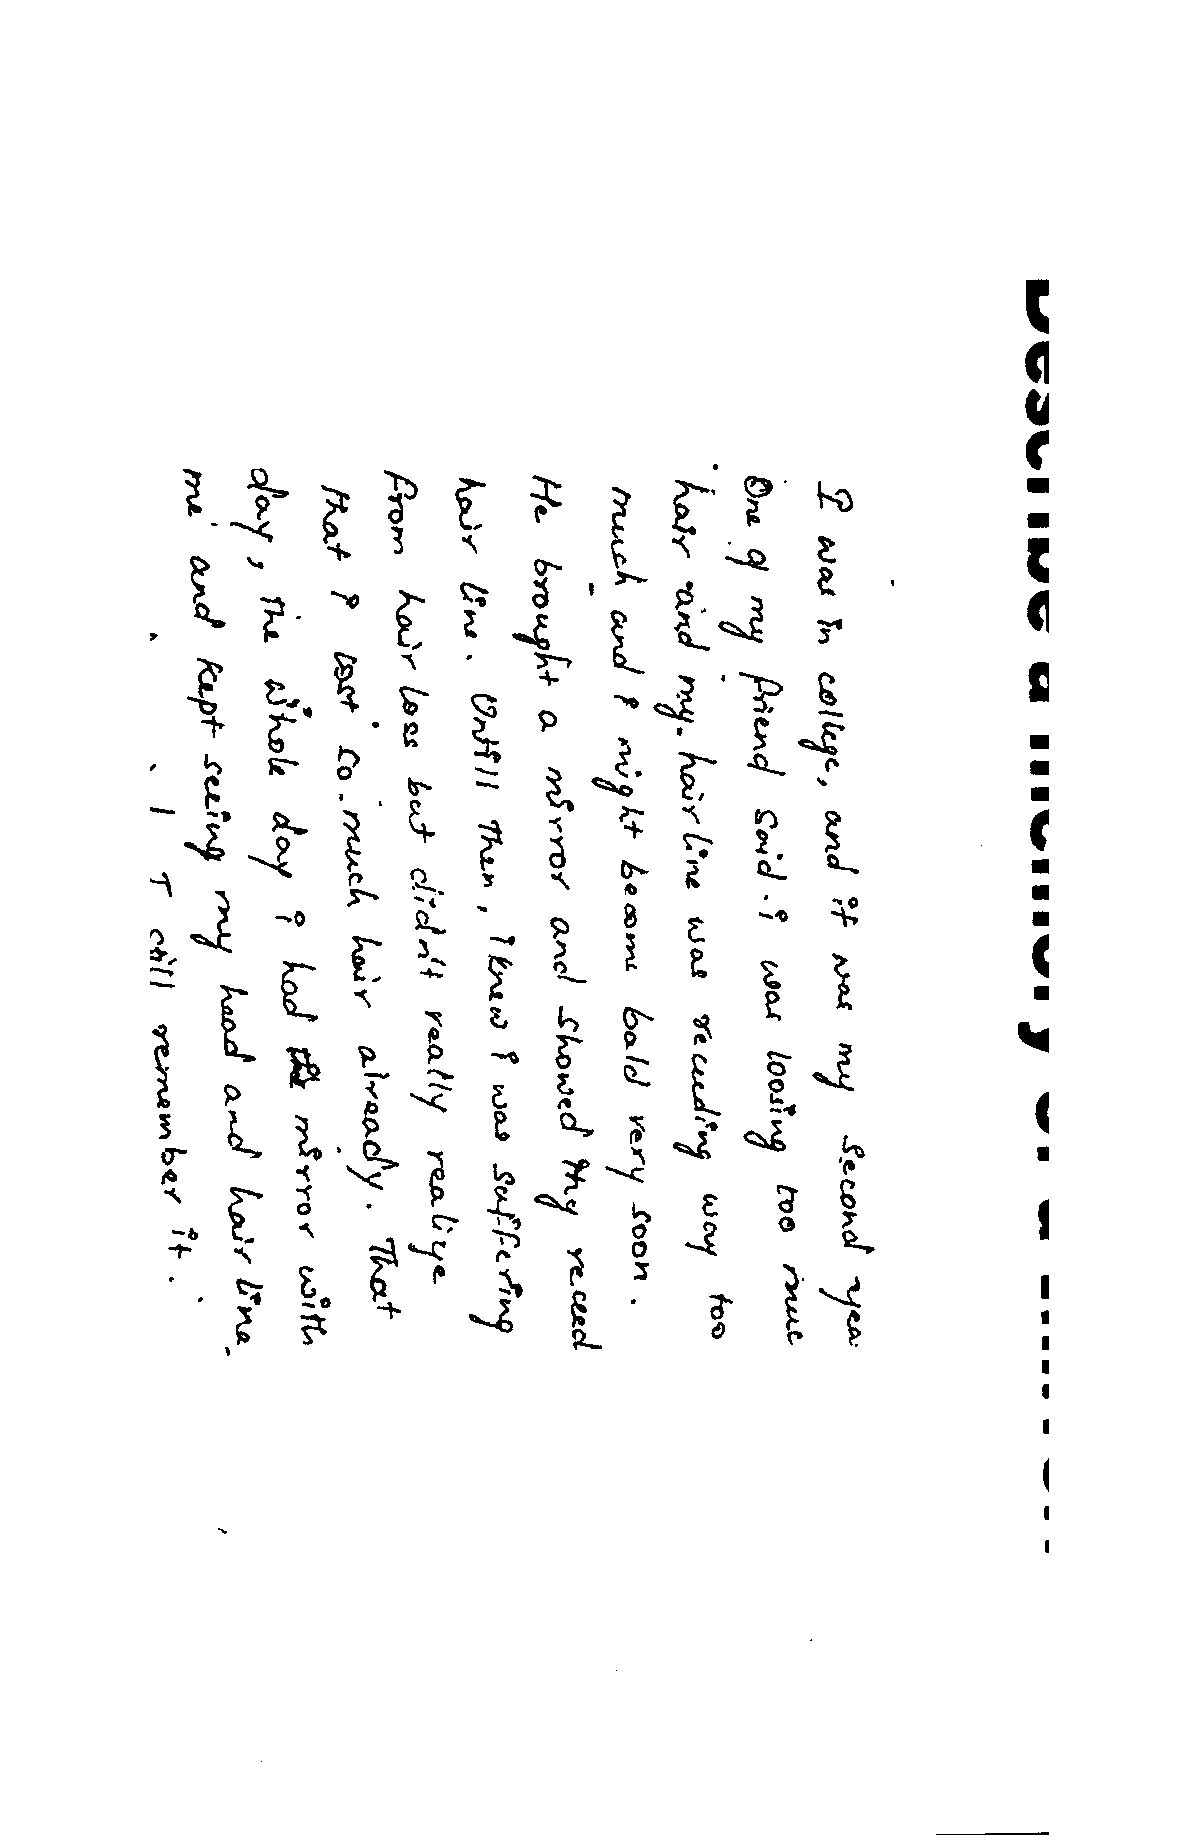 Describe a memory of a mirror
I was in college, and it was my second yea
One of my friend said i was loosing too muc
hair and my hairline was receeding way too
much and i might become bald very soon.
He brought a mirror and showed my receed
hair line. Untill then, i knew i was suffering
from hair loss but didn't really realize
that i lost so much hair already. That
day, the whole day i had the mirror with
me and kept seeing my head and hair line.
I still remember it.